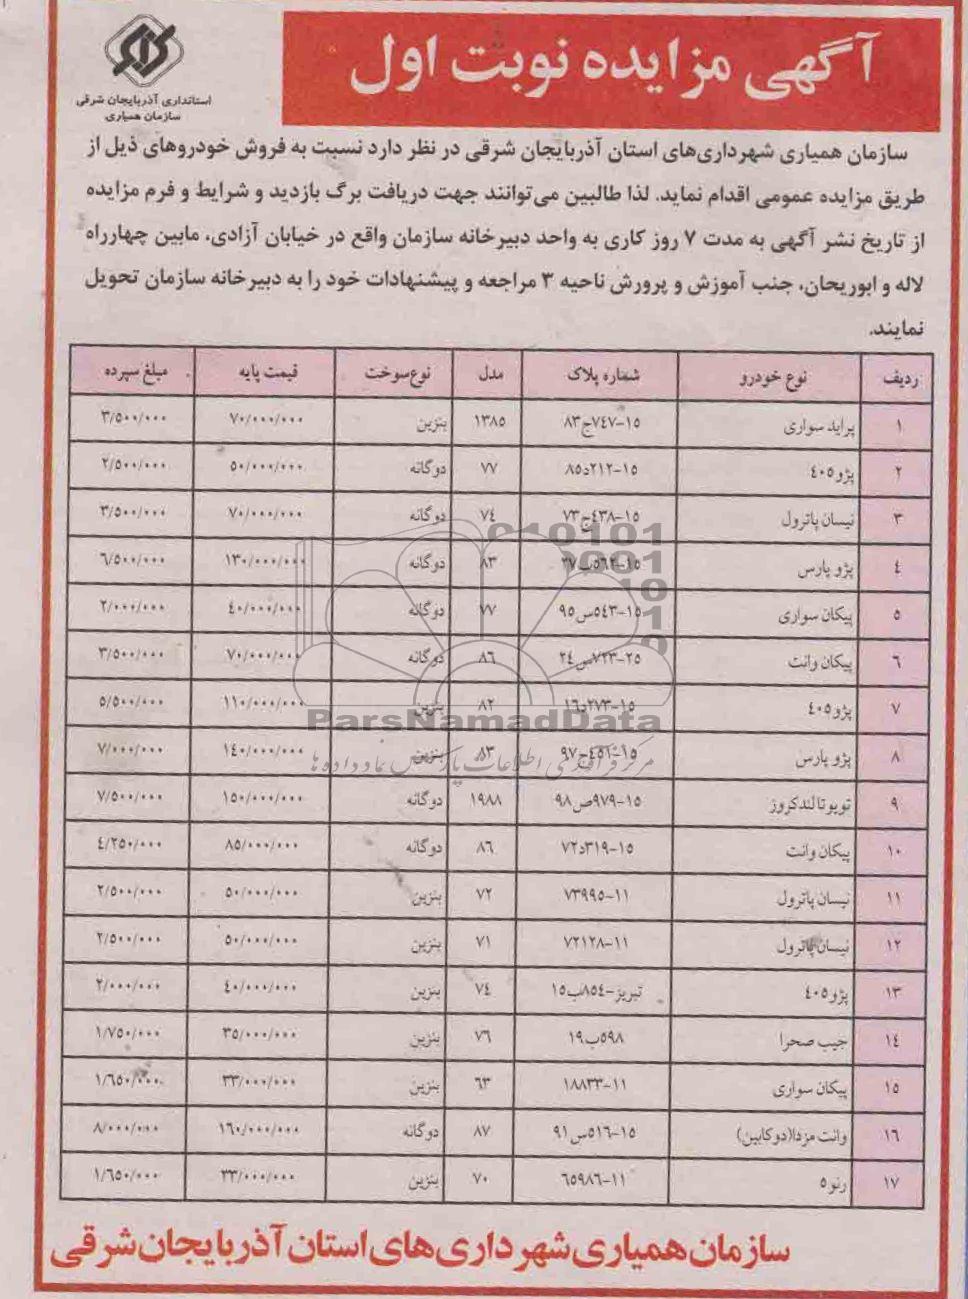 آگهی مزایده نوبت اول
استانداری آذربایجان شرقی
سازمان همیاری
سازمان همیاری شهرداری‌های استان آذربایجان شرقی در نظر دارد نسبت به فروش خودروهای ذیل از
طریق مزایده عمومی اقدام نماید. لذا طالبین می‌توانند جهت دریافت برگ بازدید و شرایط و فرم مزایده
از تاریخ نشر آگهی به مدت ۷ روز کاری به واحد دبیرخانه سازمان واقع در خیابان آزادی، مابین چهارراه
لاله و ابوریحان، جنب آموزش و پرورش ناحیه ۳ مراجعه و پیشنهادات خود را به دبیرخانه سازمان تحویل
نمایند.
ردیف نوع خودرو شماره پلاک مدل نوع سوخت قیمت پایه مبلغ سپرده
۱ پراید سواری ۱۵-۷٤۷ج۸۳ ۱۳۸۵ بنزین ۷۰/۰۰۰/۰۰۰ ۳/۵۰۰/۰۰۰
۲ پژو ٤۰۵ ۱۵-۲۱۲د۸۵ ۷۷ دوگانه ۵۰/۰۰۰/۰۰۰ ۲/۵۰۰/۰۰۰
۳ نیسان پاترول ۱۵-٤۳۸ج۷۳ ۷٤ دوگانه ۷۰/۰۰۰/۰۰۰ ۳/۵۰۰/۰۰۰
٤ پژو پارس ۱۵-۵٦۲ب۳۷ ۸۳ دوگانه ۱۳۰/۰۰۰/۰۰۰ ٦/۵۰۰/۰۰۰
۵ پیکان سواری ۱۵-۵٤۳س۹۵ ۷۷ دوگانه ٤۰/۰۰۰/۰۰۰ ۲/۰۰۰/۰۰۰
٦ پیکان وانت ۲۵-۷۲۳س۲٤ ۸٦ دوگانه ۷۰/۰۰۰/۰۰۰ ۳/۵۰۰/۰۰۰
۷ پژو ٤۰۵ ۱۵-۲۷۳د۱٦ ۸۲ بنزین ۱۱۰/۰۰۰/۰۰۰ ۵/۵۰۰/۰۰۰
۸ پژو پارس ۱۵-٤۵۱ج۹۷ ۸۳ بنزین ۱٤۰/۰۰۰/۰۰۰ ۷/۰۰۰/۰۰۰
۹ تویوتا لندکروز ۱۵-۹۷۹ص۹۸ ۱۹۸۸ دوگانه ۱۵۰/۰۰۰/۰۰۰ ۷/۵۰۰/۰۰۰
۱۰ پیکان وانت ۱۵-۳۱۹د۷۲ ۸٦ دوگانه ۸۵/۰۰۰/۰۰۰ ٤/۲۵۰/۰۰۰
۱۱ نیسان پاترول ۱۱-۷۳۹۹۵ ۷۲ بنزین ۵۰/۰۰۰/۰۰۰ ۲/۵۰۰/۰۰۰
۱۲ نیسان پاترول ۱۱-۷۲۱۲۸ ۷۱ بنزین ۵۰/۰۰۰/۰۰۰ ۲/۵۰۰/۰۰۰
۱۳ پژو ٤۰۵ تبریز-۸۵٤ب۱۵ ۷٤ بنزین ٤۰/۰۰۰/۰۰۰ ۲/۰۰۰/۰۰۰
۱٤ جیب صحرا ۵۹۸ب۱۹ ۷٦ بنزین ۳۵/۰۰۰/۰۰۰ ۱/۷۵۰/۰۰۰
۱۵ پیکان سواری ۱۱-۱۸۸۳۳ ٦۳ بنزین ۳۳/۰۰۰/۰۰۰ ۱/٦۵۰/۰۰۰
۱٦ وانت مزدا(دوکابین) ۱۵-۵۱٦س۹۱ ۸۷ دوگانه ۱٦۰/۰۰۰/۰۰۰ ۸/۰۰۰/۰۰۰
۱۷ رنو ۵ ۱۱-٦۵۹۸٦ ۷۰ بنزین ۳۳/۰۰۰/۰۰۰ ۱/٦۵۰/۰۰۰
ParsNamadData
سازمان همیاری شهرداری‌های استان آذربایجان شرقی